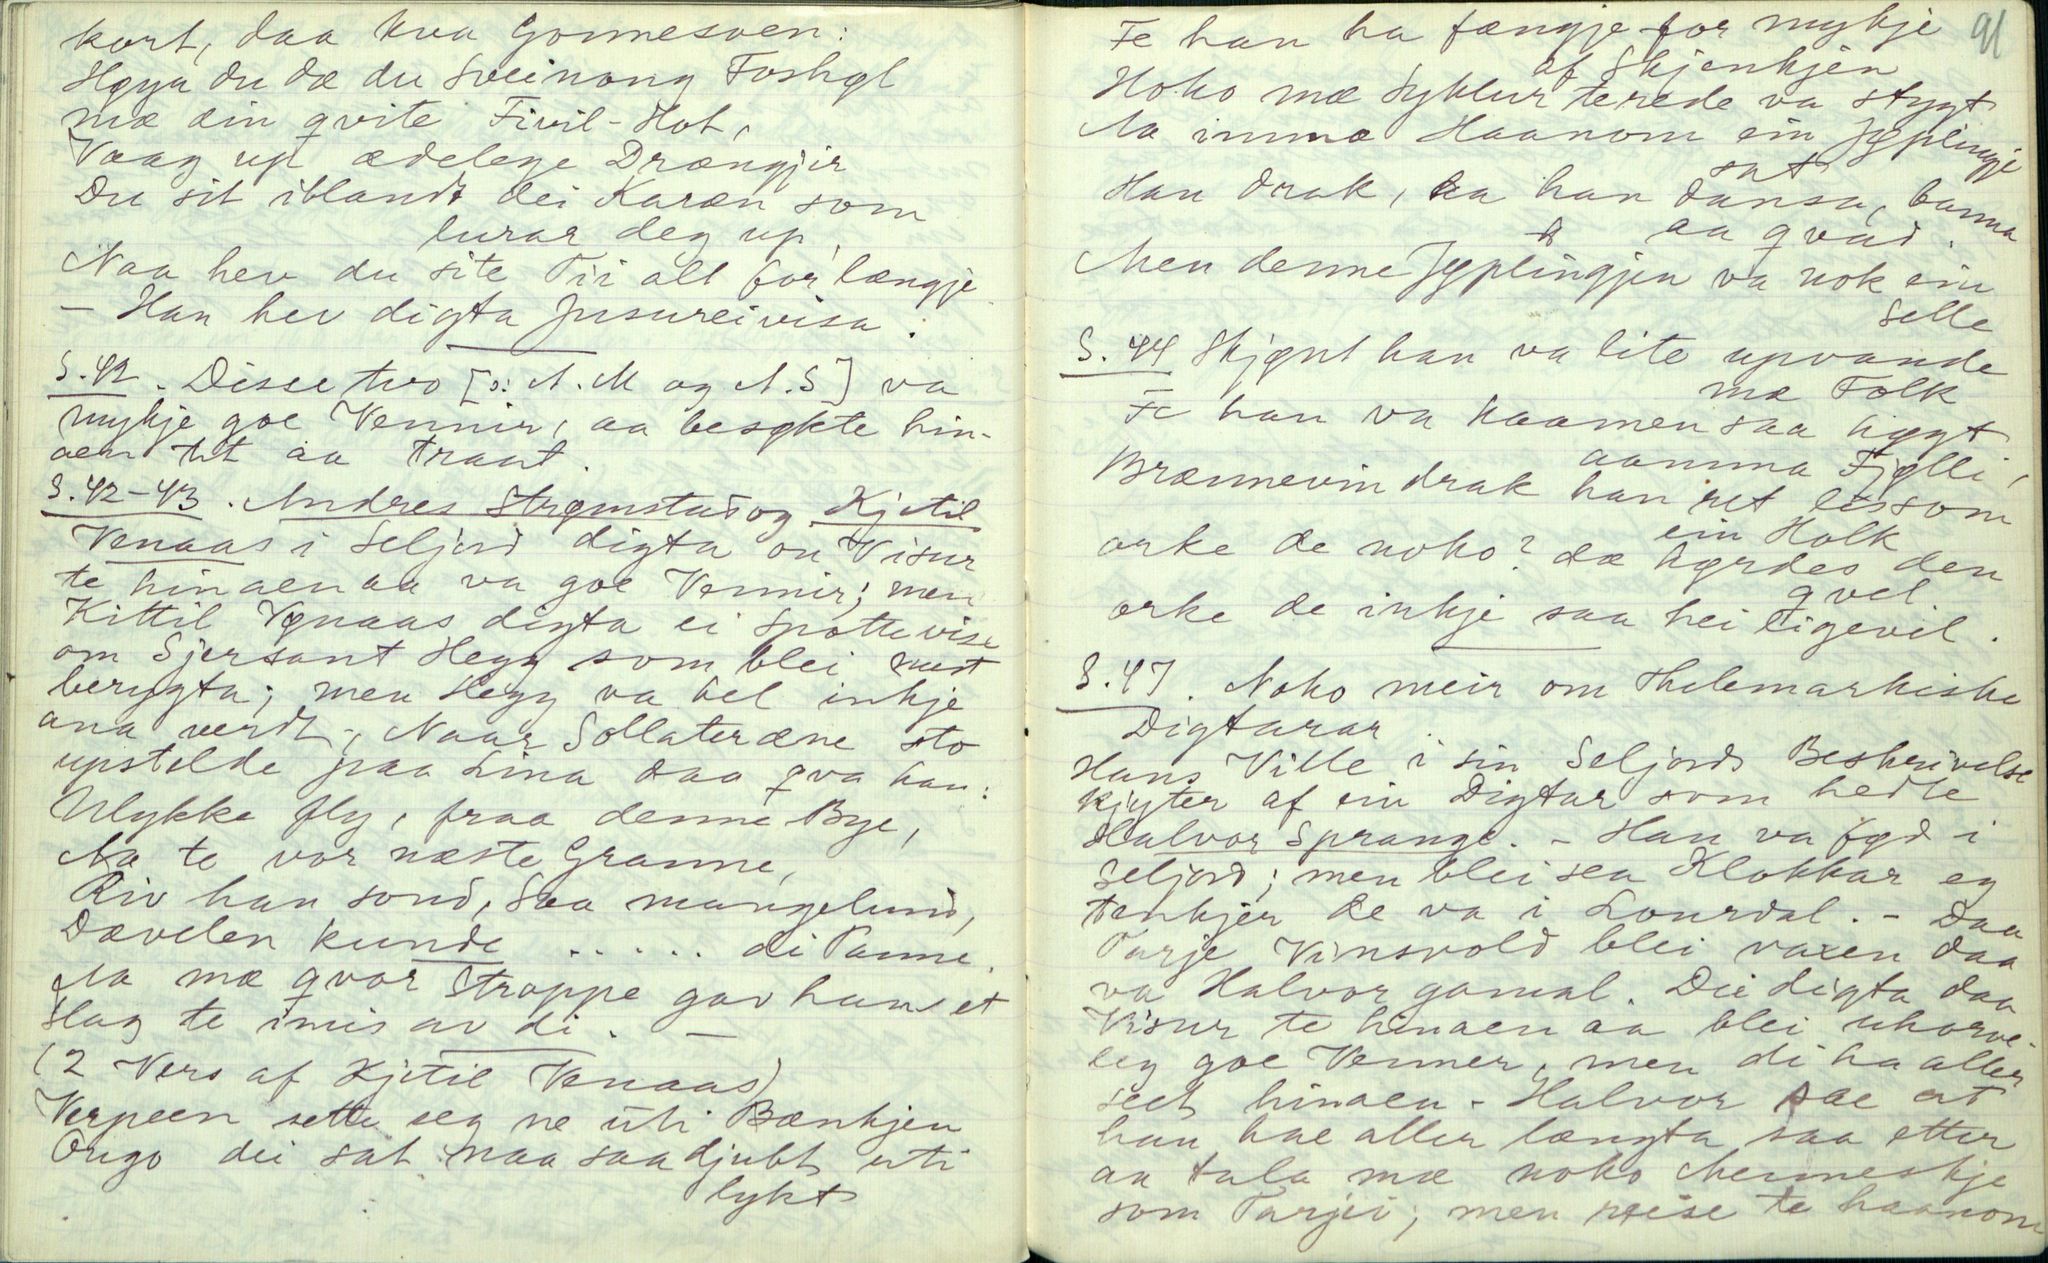 kort, daa kva Gonnesoen:
Høyr du dæ du Sveinong Foshøl
mæ din qvite Fivil-Hot,
Vaag up ædelege Drængjir
Du sit iblandt dei Karæn som
lurar deg up,
Naa hev du site Tii alt for længje
– Han hev digta Jusureivisa.
S. 42. Disse tvo [ɔ: A. M og A. S] va
mykje goe Vennir, aa besøkte hin-
aen tit aa traat.
S. 42-43. Andres Strømstad og Kjetil
Venaas i Seljord digta ou Visur
te hinaen aa va goe Vennir; men
Kittil Vønaas digta ei Spottevise
om Sjersant Hegg som blei mest
berygta; men Hegg va vel inkje
ana verdt; Naar Sollateræne sto
upstelde paa Lina daa qva han:
Ulykke fly, fraa denne Bye,
Aa te vor næste Granne,
Riv han sond, saa mangelund,
Dævelen kunde ..... di Panne.
Aa mæ qvor Stroppe gav han et
Slag te imis av di. –
(2 Vers af Kjetil Venaas)
Verpeen sette seg ne uti Bænkjen
Ougo dei sat naa saa djubt uti
lykt
91
Fe han ha fængje for mykje
af Skjenkjen
Hoko mæ Syklur terede va stygt
Aa imma Haanom ein Jyplingje
sat
Han drak, aa han dansa, banna
aa qvad.
Men denne Jyplingjen va nok ein
Selle
S. 44 Skjønt han va lite upvande
mæ Folk
Fe han va kaamen saa høgt
aamma Fjølli,
Brænnevin drak han ret lissom
ein Holk
orke de noko? dæ hørdes den
qvel
orke de inkje saa hei ligevil.
S. 47. Noko meir om Thelemarkiske
Digtarar
Hans Ville i sin Seljords Beskrivelse
kjyter af ein Digtar som hedte
Halvor Sprange. – Han va fød i
Seljord; men blei sea Klokkar eg
tenkjer de va i Lourdal. – Daa
Tarje Vinsvold blei vaxen daa
va Halvor gamal. Die digta daa
Visur te hinaen aa blei uhorve-
leg goe Venner, men di ha aller
seet hinaen. Halvor sae at
han hae aller længta saa etter
aa tala mæ noko Menneskje
som Tarjei; men reise te haanom